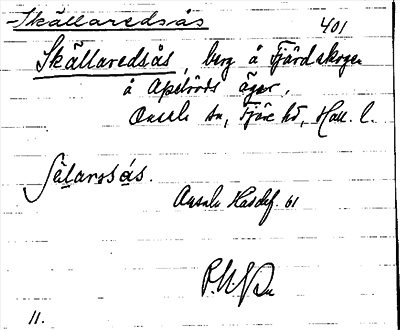 Skällaredsås
401
Skällaredsås, berg å Fjärdskogen
å Apelröds ägor,
Onsala sn, Fjäre hd, Hall. l.
Sälarsås.
Onsala Hasdef. 61
11.